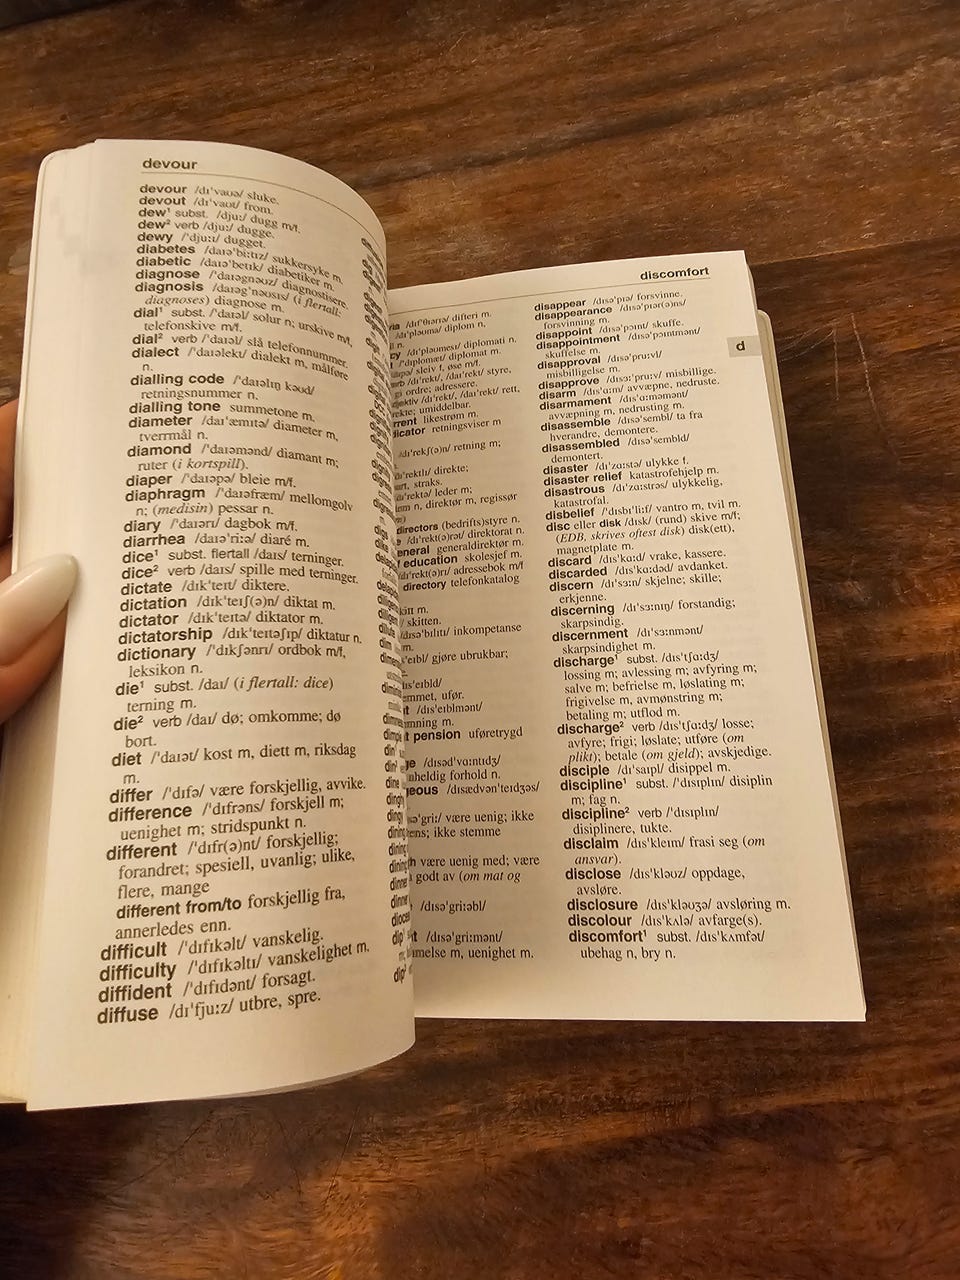 devour
devour /dɪˈvaʊə/ sluke.
devout /dɪˈvaʊt/ from.
dew¹ subst. /djuː/ dugg m/f.
dew² verb /djuː/ dugge.
dewy /ˈdjuːɪ/ dugget.
diabetes /daɪəˈbiːtɪz/ sukkersyke m.
diabetic /daɪəˈbetɪk/ diabetiker m.
diagnose /ˈdaɪəgnəʊz/ diagnostisere.
diagnosis /daɪəgˈnəʊsɪs/ (i flertall:
diagnoses) diagnose m.
dial¹ subst. /ˈdaɪəl/ solur n; urskive m/f,
telefonskive m/f.
dial² verb /ˈdaɪəl/ slå telefonnummer.
dialect /ˈdaɪəlekt/ dialekt m, målføre
n.
dialling code /ˈdaɪəlɪŋ kəʊd/
retningsnummer n.
dialling tone summetone m.
diameter /daɪˈæmɪtə/ diameter m,
tverrmål n.
diamond /ˈdaɪəmənd/ diamant m;
ruter (i kortspill).
diaper /ˈdaɪəpə/ bleie m/f.
diaphragm /ˈdaɪəfræm/ mellomgolv
n; (medisin) pessar n.
diary /ˈdaɪərɪ/ dagbok m/f.
diarrhea /daɪəˈriːə/ diaré m.
dice¹ subst. flertall /daɪs/ terninger.
dice² verb /daɪs/ spille med terninger.
dictate /dɪkˈteɪt/ diktere.
dictation /dɪkˈteɪʃ(ə)n/ diktat m.
dictator /dɪkˈteɪtə/ diktator m.
dictatorship /dɪkˈteɪtəʃɪp/ diktatur n.
dictionary /ˈdɪkʃənrɪ/ ordbok m/f,
leksikon n.
die¹ subst. /daɪ/ (i flertall: dice)
terning m.
die² verb /daɪ/ dø; omkomme; dø
bort.
diet /ˈdaɪət/ kost m, diett m, riksdag
m.
differ /ˈdɪfə/ være forskjellig, avvike.
difference /ˈdɪfrəns/ forskjell m;
uenighet m; stridspunkt n.
different /ˈdɪfr(ə)nt/ forskjellig;
forandret; spesiell, uvanlig; ulike,
flere, mange
different from/to forskjellig fra,
annerledes enn.
difficult /ˈdɪfɪkəlt/ vanskelig.
difficulty /ˈdɪfɪkəltɪ/ vanskelighet m.
diffident /ˈdɪfɪdənt/ forsagt.
diffuse /dɪˈfjuːz/ utbre, spre.
discomfort
/dɪfˈθɪərɪə/ difteri m.
/dɪˈpləʊmə/ diplom n,
n.
/dɪˈpləʊməsɪ/ diplomati n.
/ˈdɪpləmæt/ diplomat m.
sleiv f, øse m/f.
/dɪˈrekt, /daɪˈrekt/ styre,
gi ordre; adressere.
/dɪˈrekt/, /daɪˈrekt/ rett,
umiddelbar.
likestrøm m.
retningsviser m
/dɪˈrekʃ(ə)n/ retning m;
/dɪˈrektlɪ/ direkte;
straks.
/dɪˈrektə/ leder m;
n, direktør m, regissør
directors (bedrifts)styre n.
/dɪˈrekt(ə)rət/ direktorat n.
generaldirektør m.
education skolesjef m.
/dɪˈrekt(ə)rɪ/ adressebok m/f
directory telefonkatalog
skitt m.
skitten.
/dɪsəˈbɪlɪtɪ/ inkompetanse
m.
gjøre ubrukbar;
ufør.
m.
pension uføretrygd
/dɪsədˈvɑːntɪdʒ/
forhold n.
/dɪsædvənˈteɪdʒəs/
være uenig; ikke
ikke stemme
være uenig med; være
godt av (om mat og
/dɪsəˈgriːəbl/
/dɪsəˈgriːmənt/
m, uenighet m.
disappear /dɪsəˈpɪə/ forsvinne.
disappearance /dɪsəˈpɪər(ə)ns/
forsvinning m.
disappoint /dɪsəˈpɔɪnt/ skuffe.
disappointment /dɪsəˈpɔɪntmənt/
skuffelse m.
disapproval /dɪsəˈpruːvl/
misbilligelse m.
disapprove /dɪsəːˈpruːv/ misbillige.
disarm /dɪsˈɑːm/ avvæpne, nedruste.
disarmament /dɪsˈɑːməmənt/
avvæpning m, nedrusting m.
disassemble /dɪsəˈsembl/ ta fra
hverandre, demontere.
disassembled /dɪsəˈsembld/
demontert.
disaster /dɪˈzɑːstə/ ulykke f.
disaster relief katastrofehjelp m.
disastrous /dɪˈzɑːstrəs/ ulykkelig,
katastrofal.
disbelief /ˈdɪsbɪˈliːf/ vantro m, tvil m.
disc eller disk /dɪsk/ (rund) skive m/f;
(EDB, skrives oftest disk) disk(ett),
magnetplate m.
discard /dɪsˈkɑːd/ vrake, kassere.
discarded /dɪsˈkɑːdəd/ avdanket.
discern /dɪˈsɜːn/ skjelne; skille;
erkjenne.
discerning /dɪˈsɜːnɪŋ/ forstandig;
skarpsindig.
discernment /dɪˈsɜːnmənt/
skarpsindighet m.
discharge¹ subst. /dɪsˈtʃɑːdʒ/
lossing m; avlessing m; avfyring m;
salve m; befrielse m, løslating m;
frigivelse m, avmønstring m;
betaling m; utflod m.
discharge² verb /dɪsˈtʃɑːdʒ/ losse;
avfyre; frigi; løslate; utføre (om
plikt); betale (om gjeld); avskjedige.
disciple /dɪˈsaɪpl/ disippel m.
discipline¹ subst. /ˈdɪsɪplɪn/ disiplin
m; fag n.
discipline² verb /ˈdɪsɪplɪn/
disiplinere, tukte.
disclaim /dɪsˈkleɪm/ frasi seg (om
ansvar).
disclose /dɪsˈkləʊz/ oppdage,
avsløre.
disclosure /dɪsˈkləʊʒə/ avsløring m.
discolour /dɪsˈkʌlə/ avfarge(s).
discomfort¹ subst. /dɪsˈkʌmfət/
ubehag n, bry n.
d